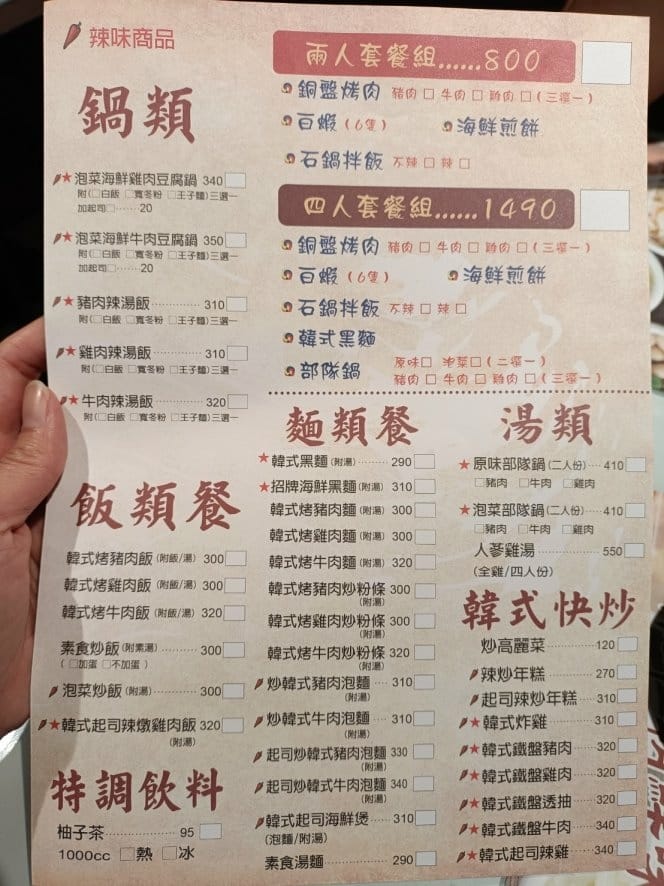 辣味商品
鍋類
★泡菜海鮮雞肉豆腐鍋 340□
附(□白飯 □寬冬粉 □王子麵)三選一
加起司□‧‧‧‧‧‧‧20
★泡菜海鮮牛肉豆腐鍋 350□
附(□白飯 □寬冬粉 □王子麵)三選一
加起司□‧‧‧‧‧‧‧20
★豬肉辣湯飯 310□
附(□白飯 □寬冬粉 □王子麵)三選一
★雞肉辣湯飯 310□
附(□白飯 □寬冬粉 □王子麵)三選一
★牛肉辣湯飯 320□
附(□白飯 □寬冬粉 □王子麵)三選一
飯類餐
韓式烤豬肉飯(附飯/湯) 300□
韓式烤雞肉飯(附飯/湯) 300□
韓式烤牛肉飯(附飯/湯) 320□
素食炒飯(附素湯) 300□
(□加蛋 □不加蛋)
泡菜炒飯(附湯) 300□
★韓式起司辣燉雞肉飯 320□
(附湯)
特調飲料
柚子茶 95□
1000cc □熱 □冰
兩人套餐組......800□
銅盤烤肉 豬肉□ 牛肉□ 雞肉□(三選一)
白蝦(6隻) 海鮮煎餅
石鍋拌飯 不辣□ 辣□
四人套餐組......1490□
銅盤烤肉 豬肉□ 牛肉□ 雞肉□(三選一)
白蝦(6隻) 海鮮煎餅
石鍋拌飯 不辣□ 辣□
韓式黑麵
部隊鍋 原味□ 泡菜□(二選一)
豬肉□ 牛肉□ 雞肉□(三選一)
麵類餐
★韓式黑麵(附湯) 290□
★招牌海鮮黑麵(附湯) 310□
韓式烤豬肉麵(附湯) 300□
韓式烤雞肉麵(附湯) 300□
韓式烤牛肉麵(附湯) 320□
韓式烤豬肉炒粉條 300□
(附湯)
韓式烤雞肉炒粉條 300□
(附湯)
韓式烤牛肉炒粉條 320□
(附湯)
炒韓式豬肉泡麵 310□
(附湯)
炒韓式牛肉泡麵 310□
(附湯)
起司炒韓式豬肉泡麵 330□
(附湯)
起司炒韓式牛肉泡麵 340□
(附湯)
韓式起司海鮮煲 310□
(泡麵/附湯)
素食湯麵 290□
湯類
★原味部隊鍋(二人份) 410□
□豬肉 □牛肉 □雞肉
★泡菜部隊鍋(二人份) 410□
□豬肉 □牛肉 □雞肉
人蔘雞湯 550□
(全雞/四人份)
韓式快炒
炒高麗菜 120□
辣炒年糕 270□
起司辣炒年糕 310□
★韓式炸雞 310□
★韓式鐵盤豬肉 320□
★韓式鐵盤雞肉 320□
★韓式鐵盤透抽 320□
★韓式鐵盤牛肉 340□
★韓式起司辣雞 340□